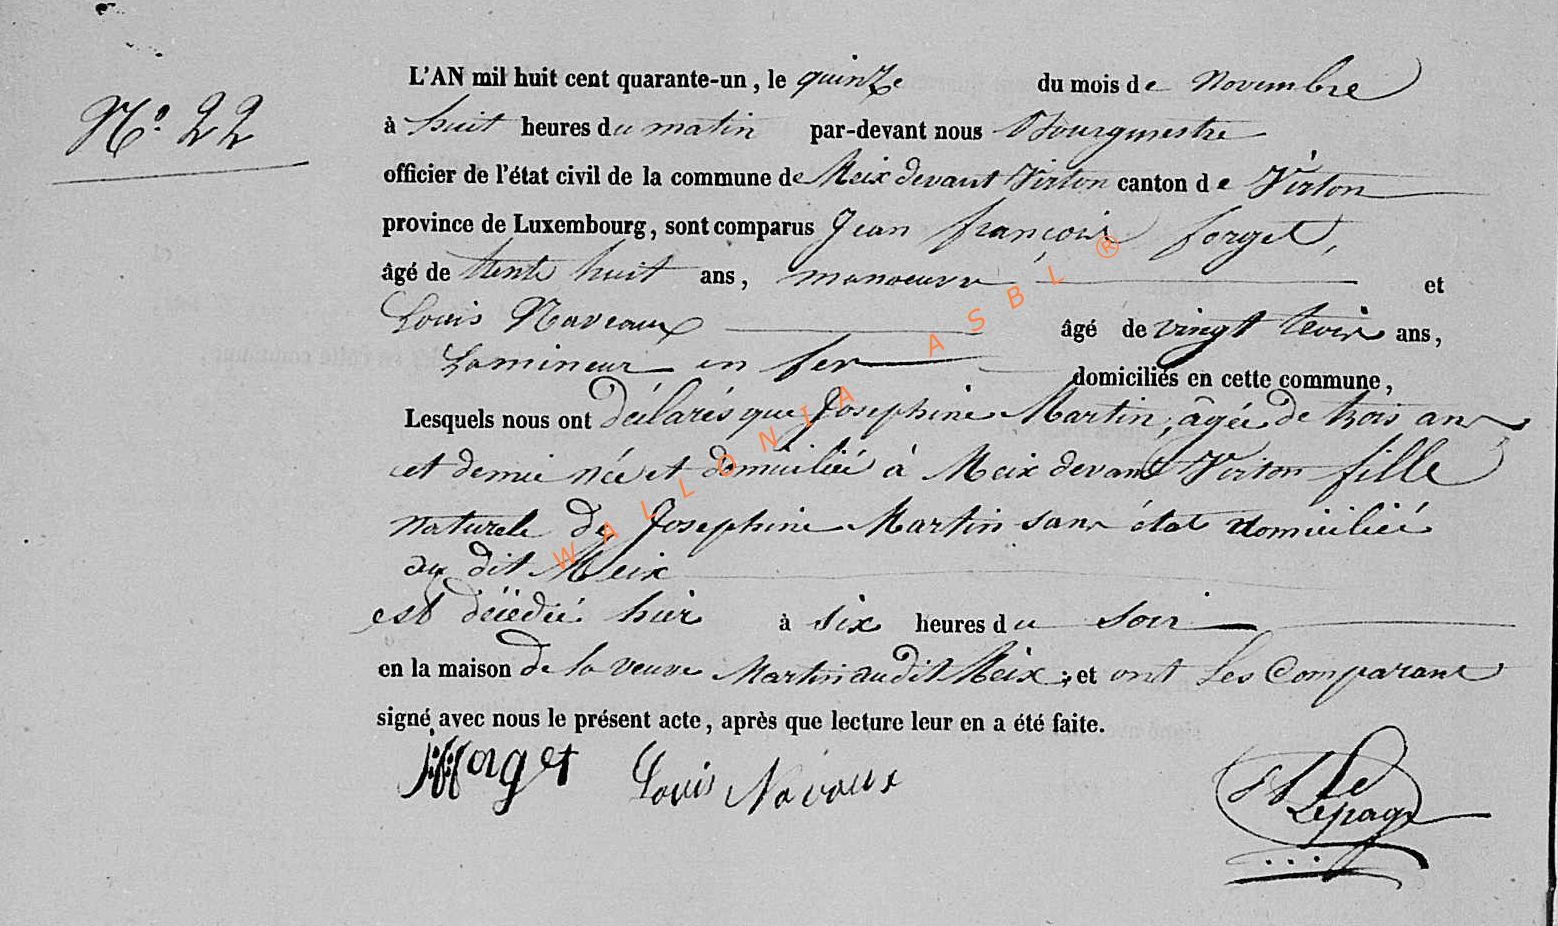 N.° 22
L'AN mil huit cent quarante-un, le quinze du mois de Novembre
à huit heures du matin par-devant nous Bourgmestre
officier de l'état civil de la commune de Meix devant Virton canton de Virton
province de Luxembourg, sont comparus Jean françois forget,
âgé de trente huit ans, manoeuvre et
Louis Naveaux âgé de vingt trois ans,
Lamineur en fer domiciliés en cette commune,
Lesquels nous ont déclarés que Josephine Martin, âgée de trois ans
et demie née et domiciliée à Meix devant Virton fille
naturele de Josephine Martin sans état domiciliée
au dit Meix
est décédée hier à six heures du soir
en la maison de la veuve Martin audit Meix, et ont les Comparans
signé avec nous le présent acte, après que lecture leur en a été faite.
forget Louis Navaux Lepage
WALLONIA ASBL ®